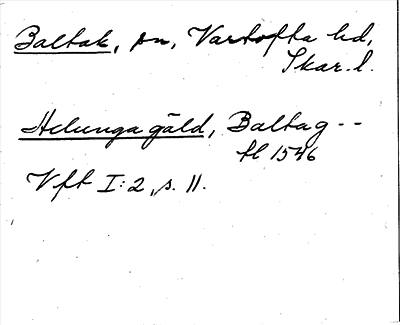 Baltak, sn, Vartofta hd,
Skar. l.
Helungagäld, Baltag --
tl 1546
Vft I:2, s. 11.